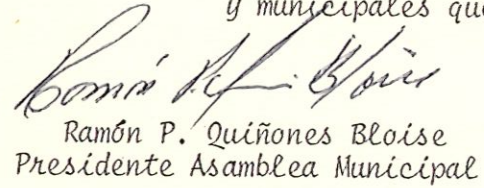 y municipales que
Ramón P. Quiñones Bloise
Ramón P. Quiñones Bloise
Presidente Asamblea Municipal